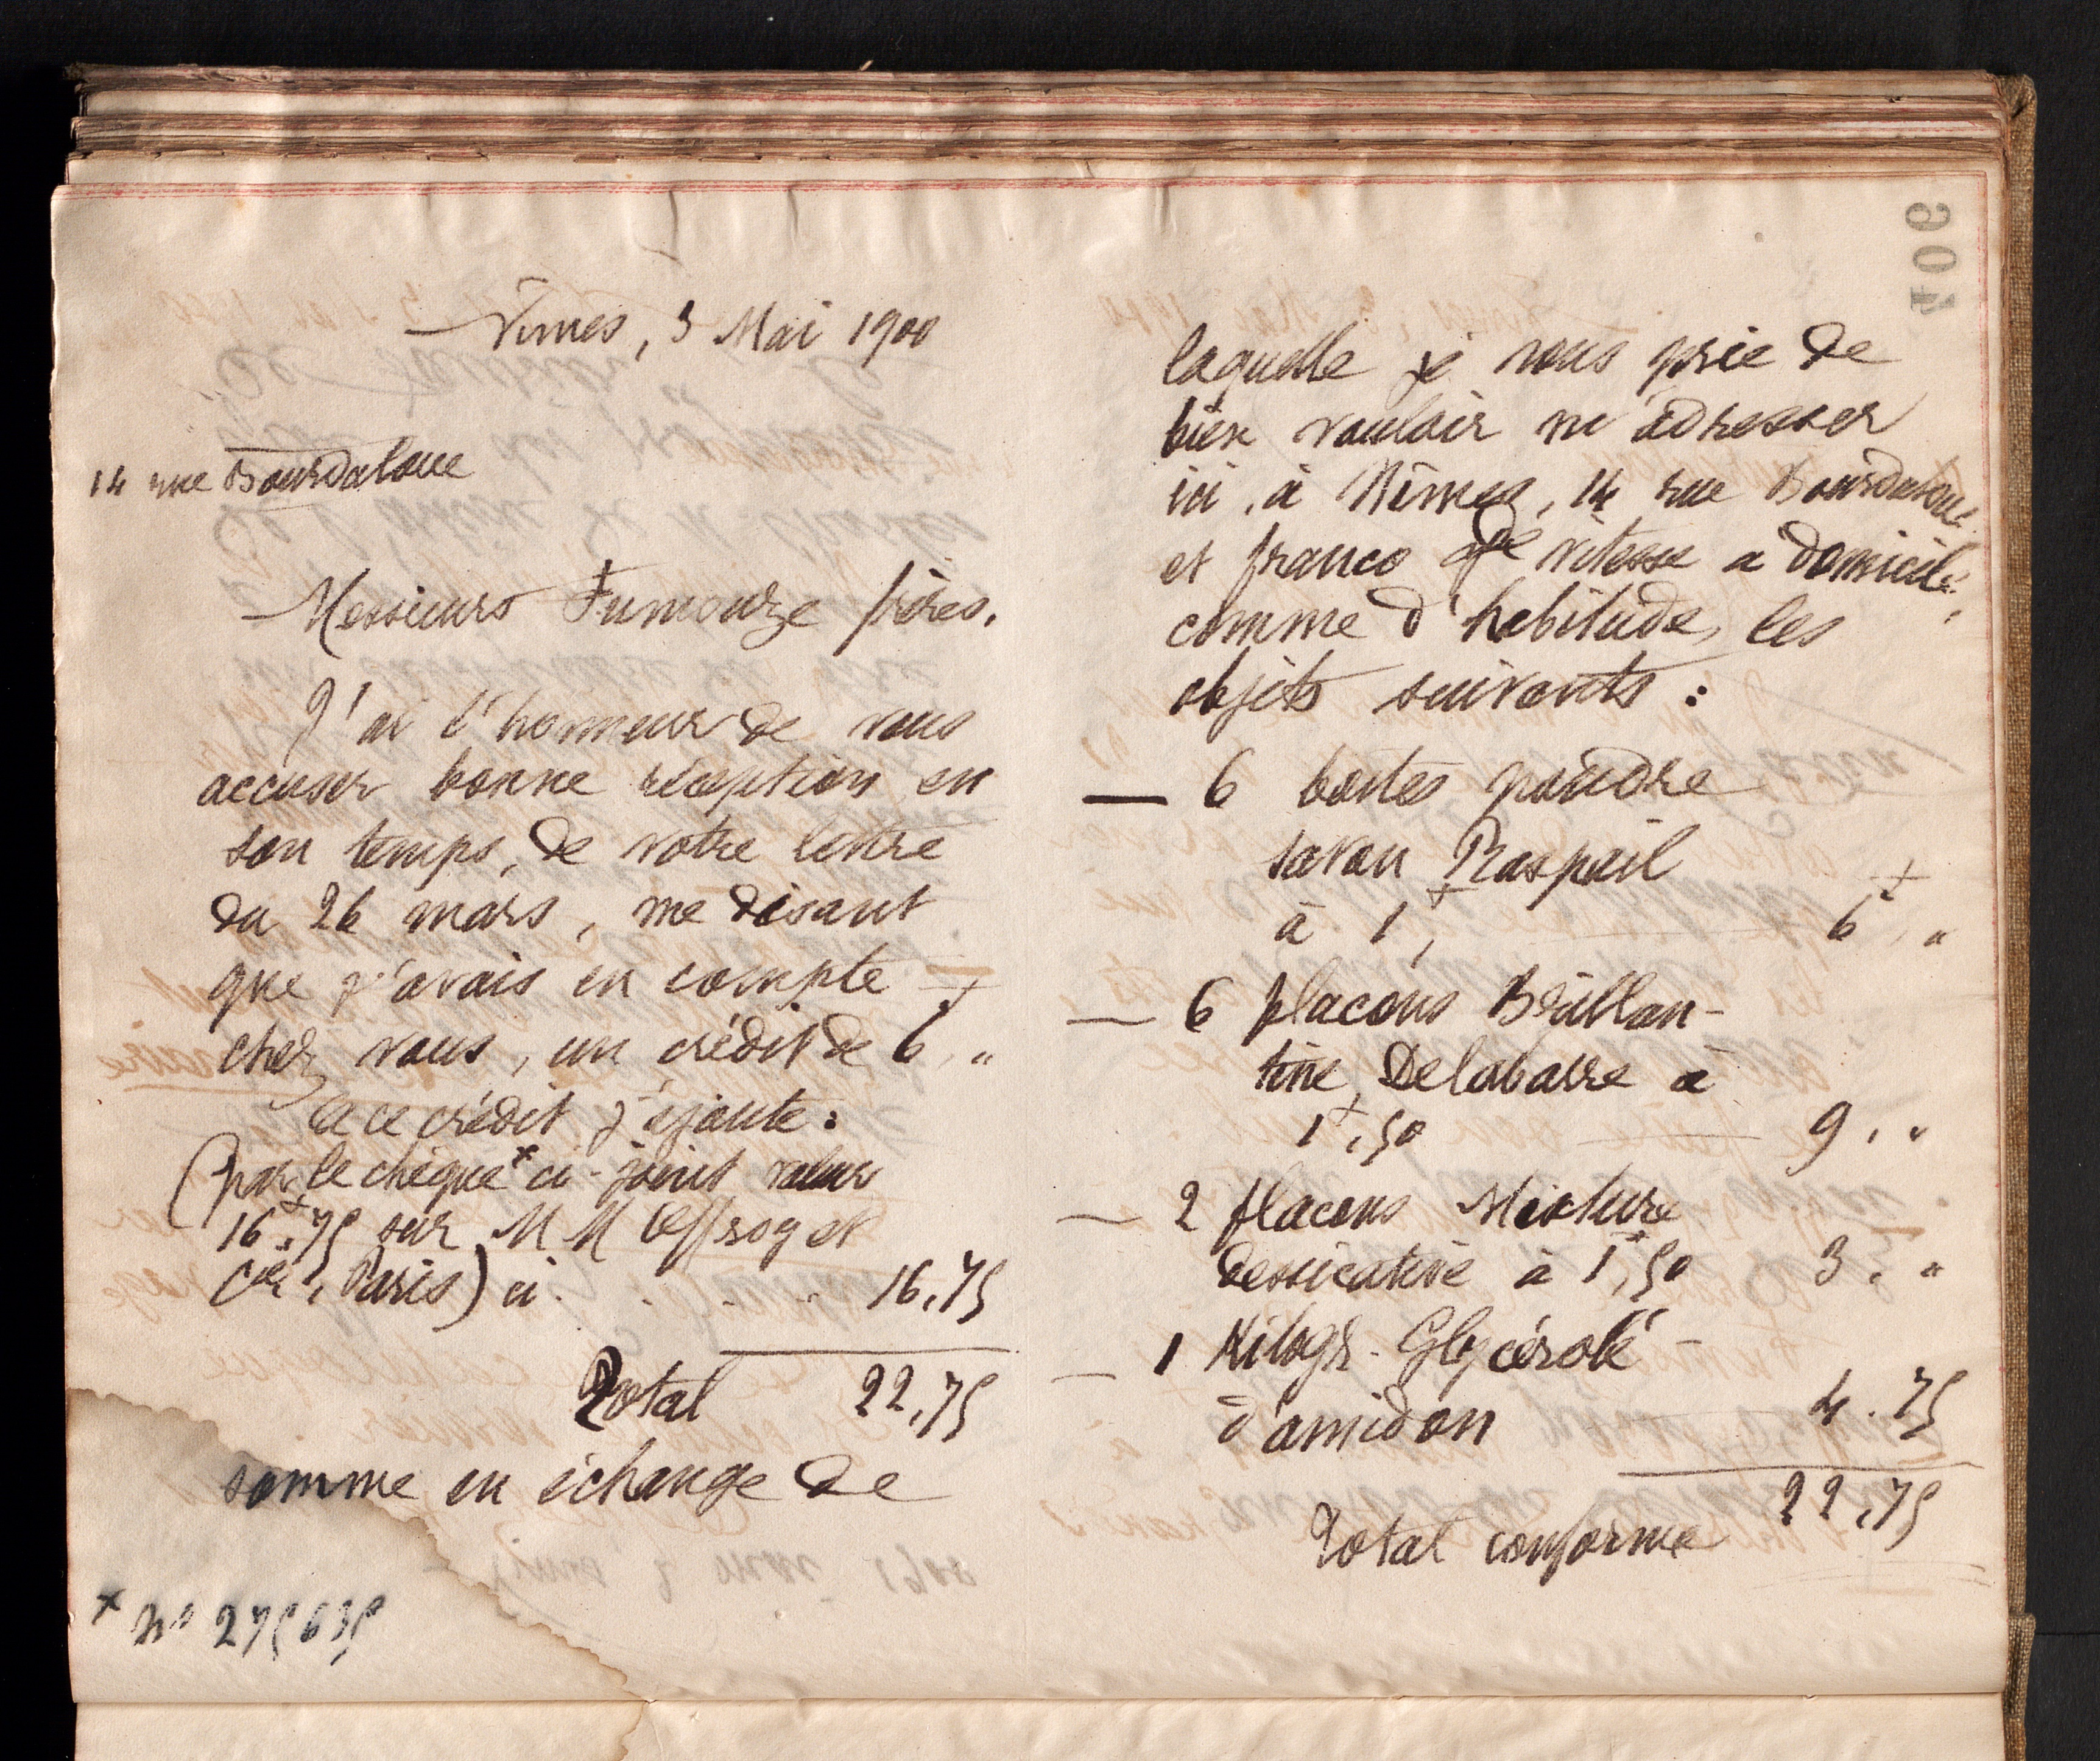 Nîmes, 3 Mai 1900
14 rue Bourdaloue
Messieurs Fumouze frères.
J'ai l'honneur de vous
accuser bonne réception en
son temps, de votre lettre
du 26 mars, me disant
que j'avais en compte
chez vous, un crédit de 6f, "
à ce crédit j'ajoute :
(par le chèque x ci-joint valeur
16f.75 sur MM Offroy et
Cie, Paris) ci . . . . 16,75
Total 22,75
somme en échange de
x no 275635
406
laquelle je vous prie de
bien vouloir m'adresser
ici, à Nîmes, 14 rue Bourdaloue
et franco gde vitesse à domicile,
comme d'habitude, les
objets suivants :
— 6 boîtes poudre
savon Raspail
à 1f, 6f, "
— 6 flacons Brillan-
tine Delabarre à
1f,50 9, "
— 2 flacons Mixture
dessicative à 1f,50 3, "
— 1 Kilogr. Glycérolé
d'amidon 4.75
22,75
Total conforme